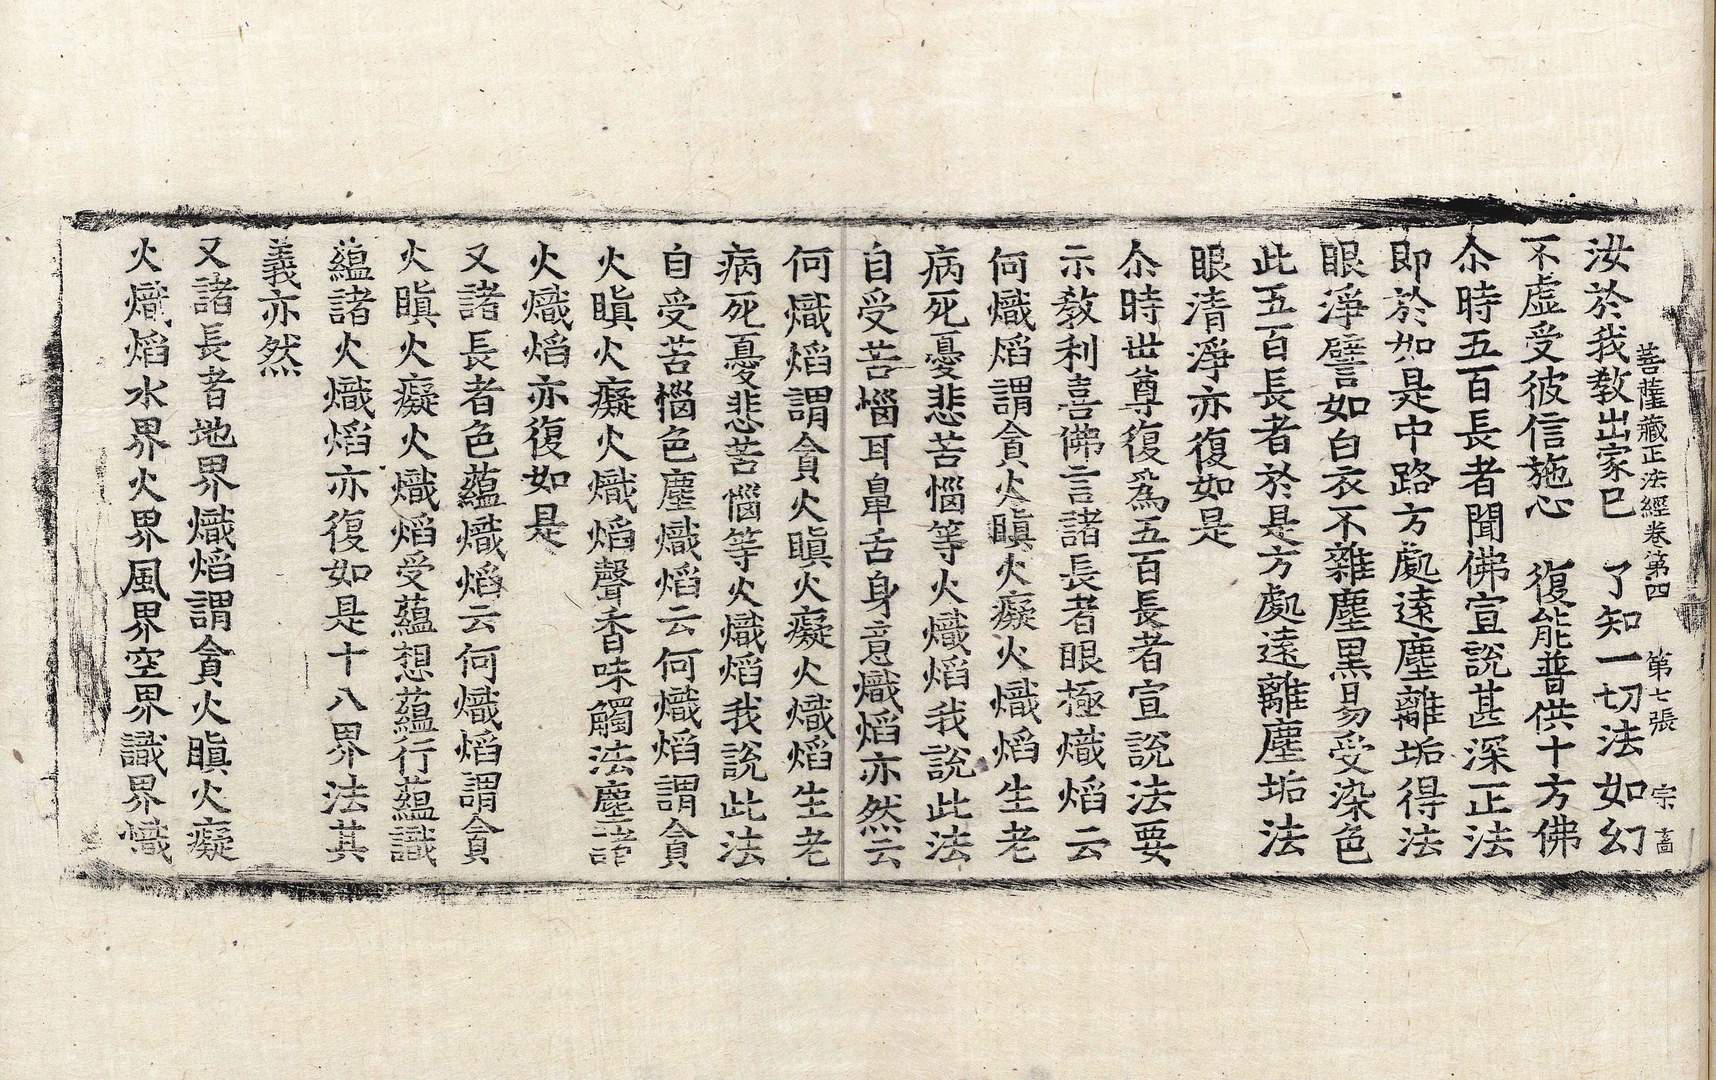 菩薩藏正法經卷第四 第七張 宗
汝於我教出家已 了知一切法如幻
不虛受彼信施心 復能普供十方佛
尒時五百長者聞佛宣說甚深正法
即於如是中路方處遠塵離垢得法
眼淨譬如白衣不雜塵黑易受染色
此五百長者於是方處遠離塵垢法
眼清淨亦復如是
尒時世尊復爲五百長者宣說法要
示教利喜佛言諸長者眼極熾焰云
何熾焰謂貪火瞋火癡火熾焰生老
病死憂悲苦惱等火熾焰我說此法
自受苦惱耳鼻舌身意熾焰亦然云
何熾焰謂貪火瞋火癡火熾焰生老
病死憂悲苦惱等火熾焰我說此法
自受苦惱色塵熾焰云何熾焰謂貪
火瞋火癡火熾焰聲香味觸法塵諸
火熾焰亦復如是
又諸長者色蘊熾焰云何熾焰謂貪
火瞋火癡火熾焰受蘊想蘊行蘊識
蘊諸火熾焰亦復如是十八界法其
義亦然
又諸長者地界熾焰謂貪火瞋火癡
火熾焰水界火界風界空界識界熾